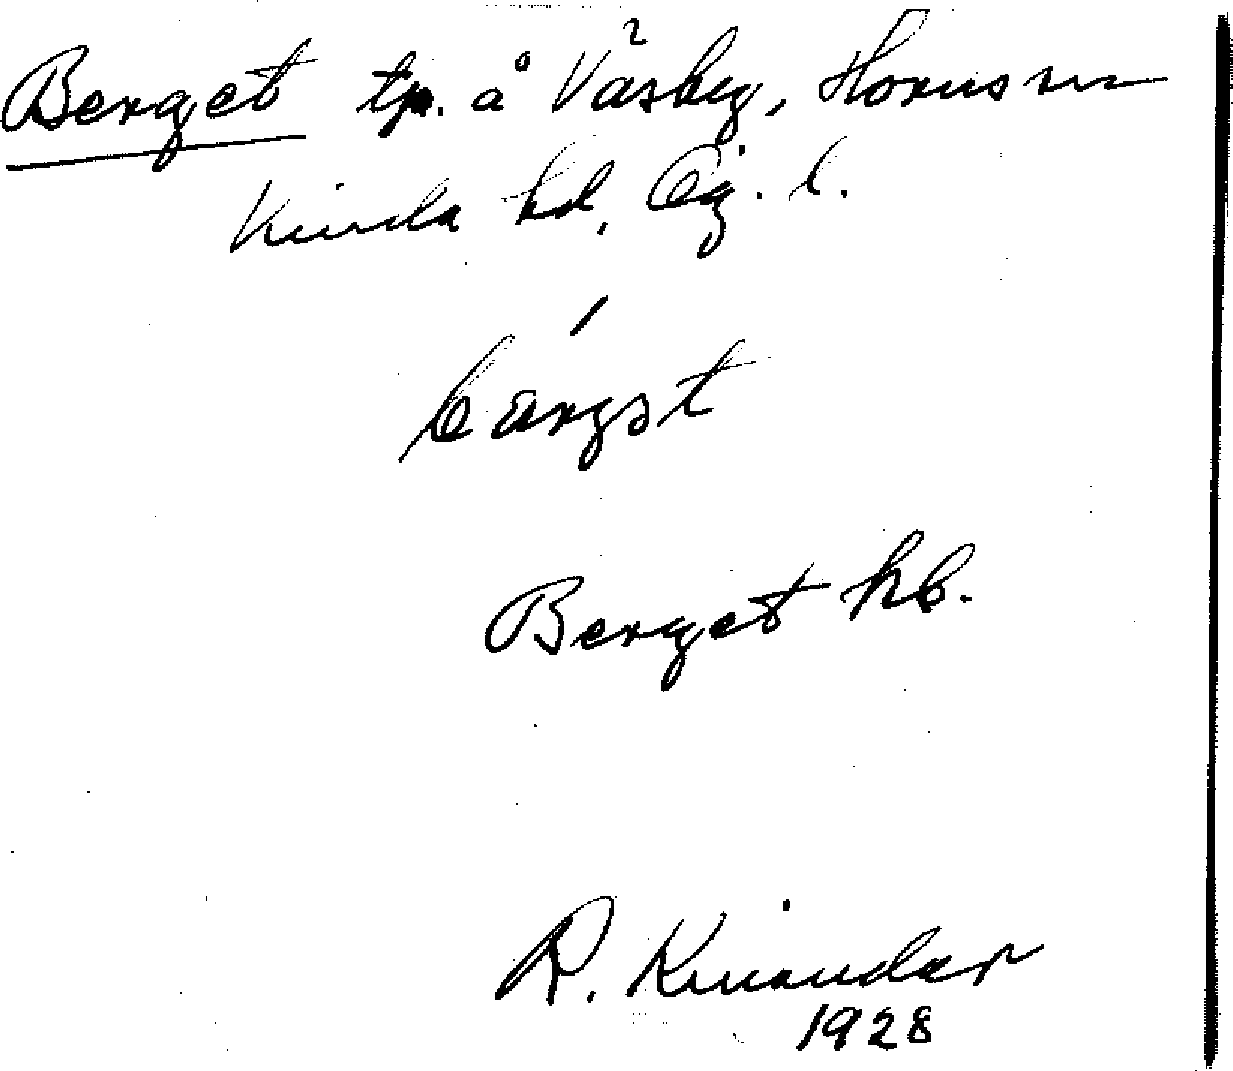 Berget tp. å Våsby, Horns sn
Kinda hd, Ög. l.
Berget hb.
R. Kinander
1928